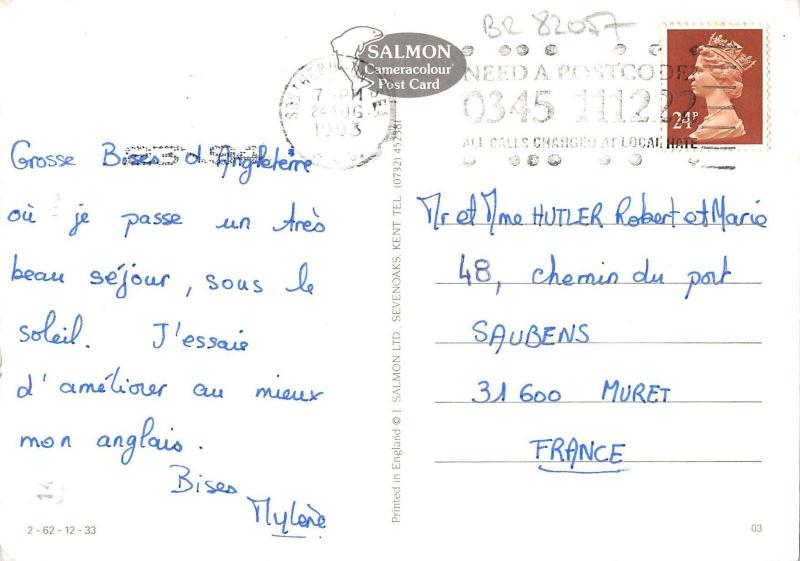 BR 82057
SALMON
Cameracolour
Post Card
7 PM
1993
NEED A POSTCODE?
0345 111222
ALL CALLS CHARGED AT LOCAL RATE
24P
Grosse Bises d'Angleterre
où je passe un très
beau séjour, sous le
soleil. J'essaie
d'améliorer au mieux
mon anglais.
Bises
Mylène
2 - 62 - 12 - 33
Printed in England © J. SALMON LTD., SEVENOAKS, KENT. TEL (0732) 452381
Mr et Mme HUTLER Robert et Marie
48, chemin du port
SAUBENS
31 600 MURET
FRANCE
03